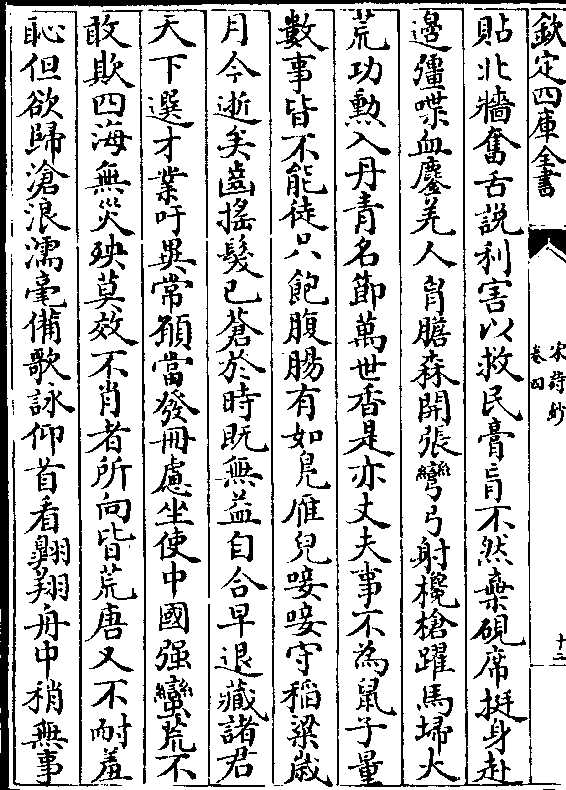 欽定四庫全書
宋詩鈔
卷四
十二
貼北牆奮舌說利害以救民膏肓不然棄硯席挺身赴
邊疆喋血鏖羌人胷膽森開張彎弓射欃槍躍馬埽大
荒功勲入丹青名節萬世香是亦丈夫事不為鼠子量
數事皆不能徒只飽腹腸有如鳬雁兒唼唼守稻粱歲
月今逝矣齒搖髮已蒼於時既無益自合早退藏諸君
天下選才業吁異常願當發冊慮坐使中國强蠻荒不
敢欺四海無災殃莫效不肖者所向皆荒唐又不耐羞
恥但欲歸滄浪濡毫備歌詠仰首看翺翔舟中稍無事